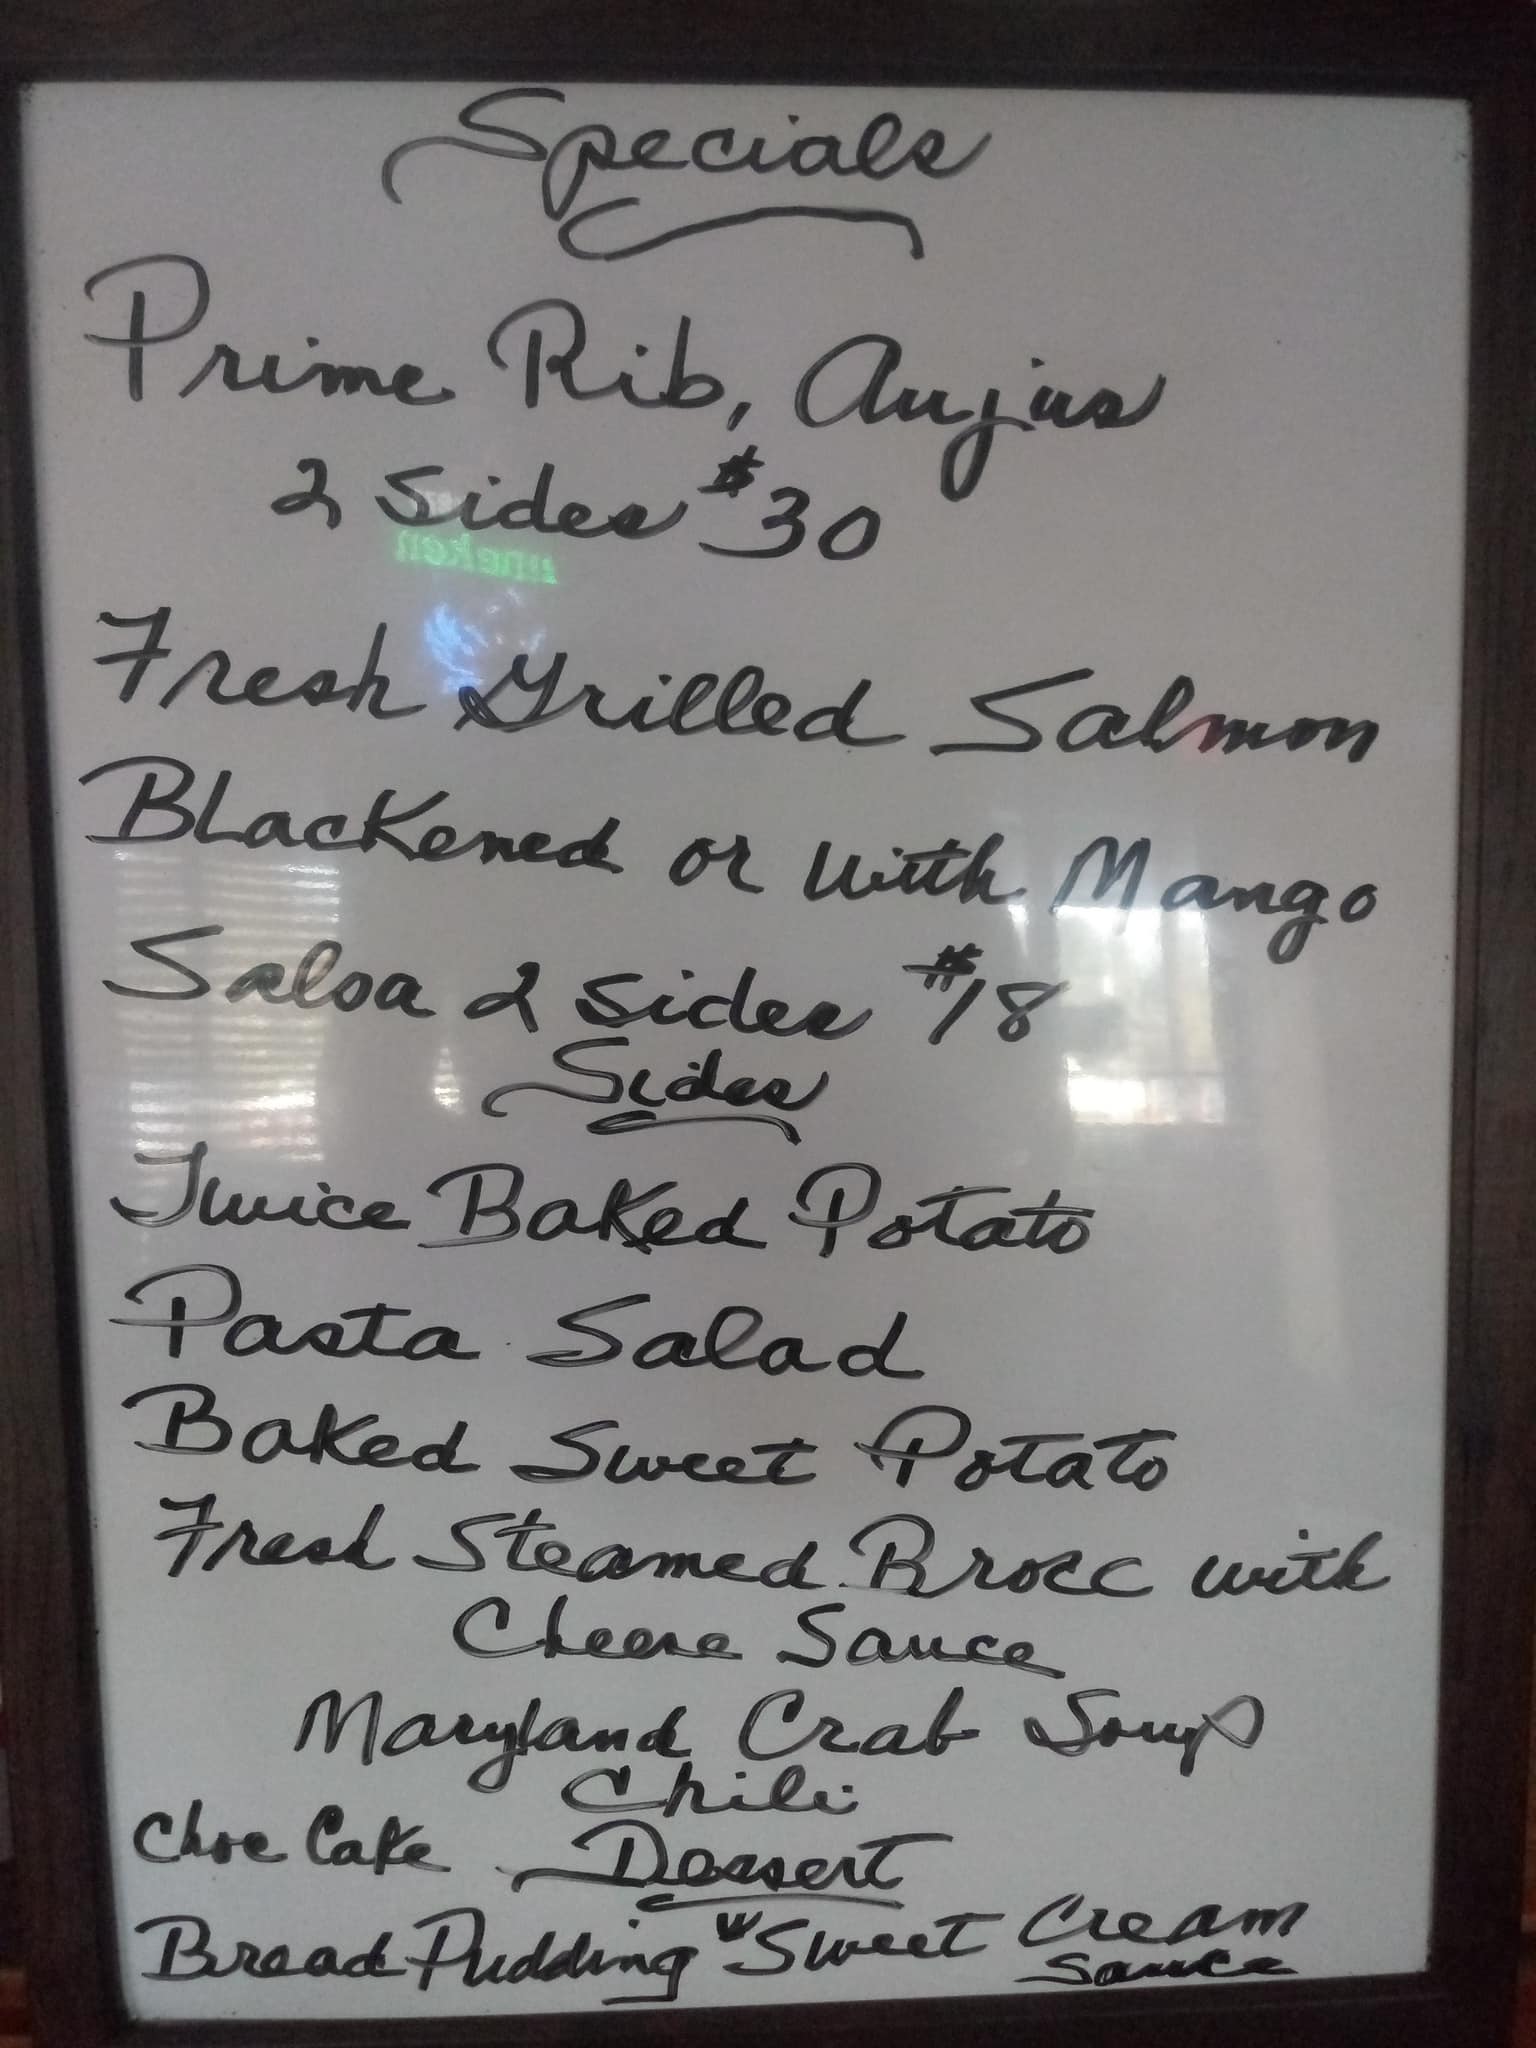 Specials
Prime Rib, Aujus
2 Sides $30
Fresh Grilled Salmon
Blackened or with Mango
Salsa 2 sides $18
Sides
Twice Baked Potato
Pasta Salad
Baked Sweet Potato
Fresh Steamed Brocc with
Cheese Sauce
Maryland Crab Soup
Chili
Choc Cake
Dessert
Bread Pudding w Sweet Cream
Sauce